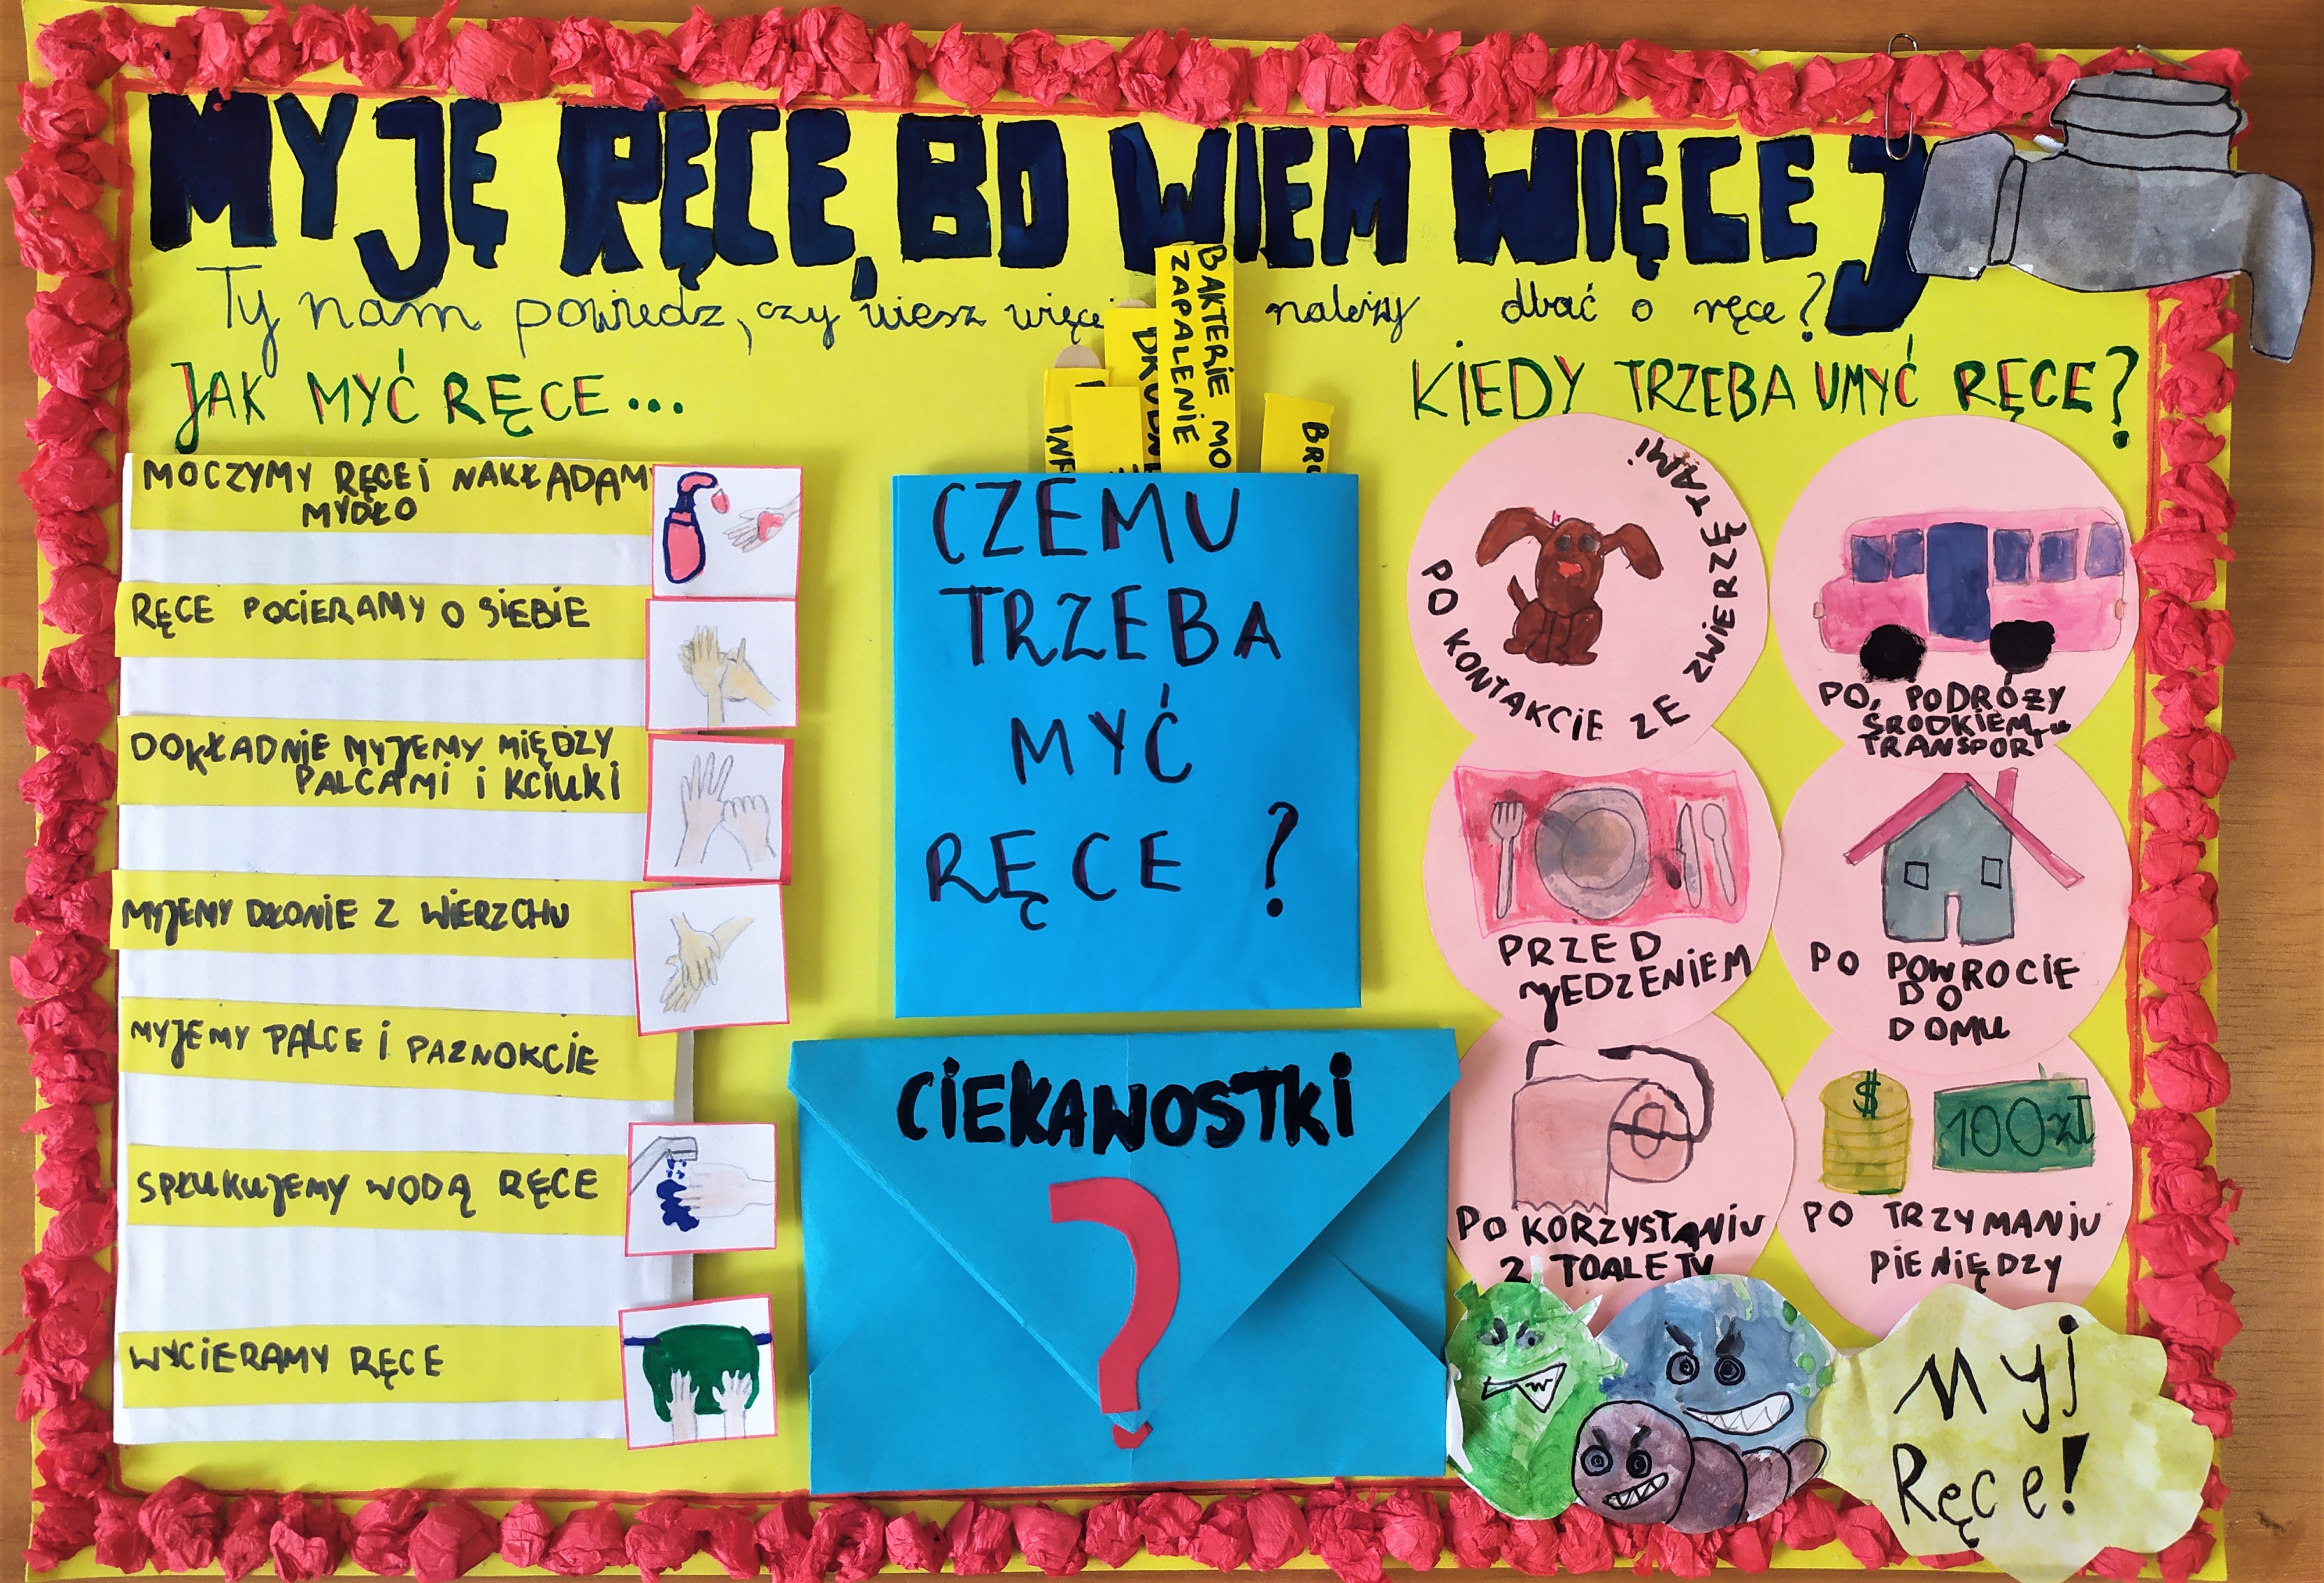 MYJĘ RĘCE, BO WIEM WIĘCEJ
Ty nam powiedz, czy wiesz więce należy dbać o ręce?
JAK MYĆ RĘCE...
MOCZYMY RĘCE i NAKŁĄDAMY
MYDŁO
RĘCE POCIERAMY O SIEBIE
DOKŁADNIE MYJEMY MIĘDZY
PALCAMI i KCIUKI
MYJEMY DŁONIE Z WIERZCHU
MYJEMY PALCE i PAZNOKCIE
SPŁUKUJEMY WODĄ RĘCE
WYCIERAMY RĘCE
BAKTERIE MO
ZAPALENIE
INF
BRU
CZEMU
TRZEBA
MYĆ
RĘCE ?
CIEKAWOSTKI
?
KIEDY TRZEBA UMYĆ RĘCE?
PO KONTAKCIE ZE ZWIERZĘTAMI!
PO PODRÓŻY
ŚRODKIEM
TRANSPORTU
PRZED
JEDZENIEM
PO POWROCIE
DO
DOMU
PO KORZYSTANIU
Z TOALETY
$
100 zł
PO TRZYMANIU
PIENIĘDZY
Myj
Ręce!